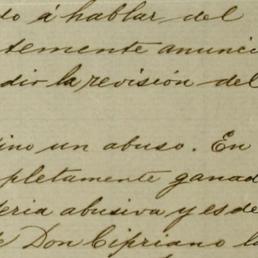 do á hablar del
temente anunci
dir la revisión del
ino un abuso. En
pletamente ganad
eria abusiva y es de
e Don Cipriano la